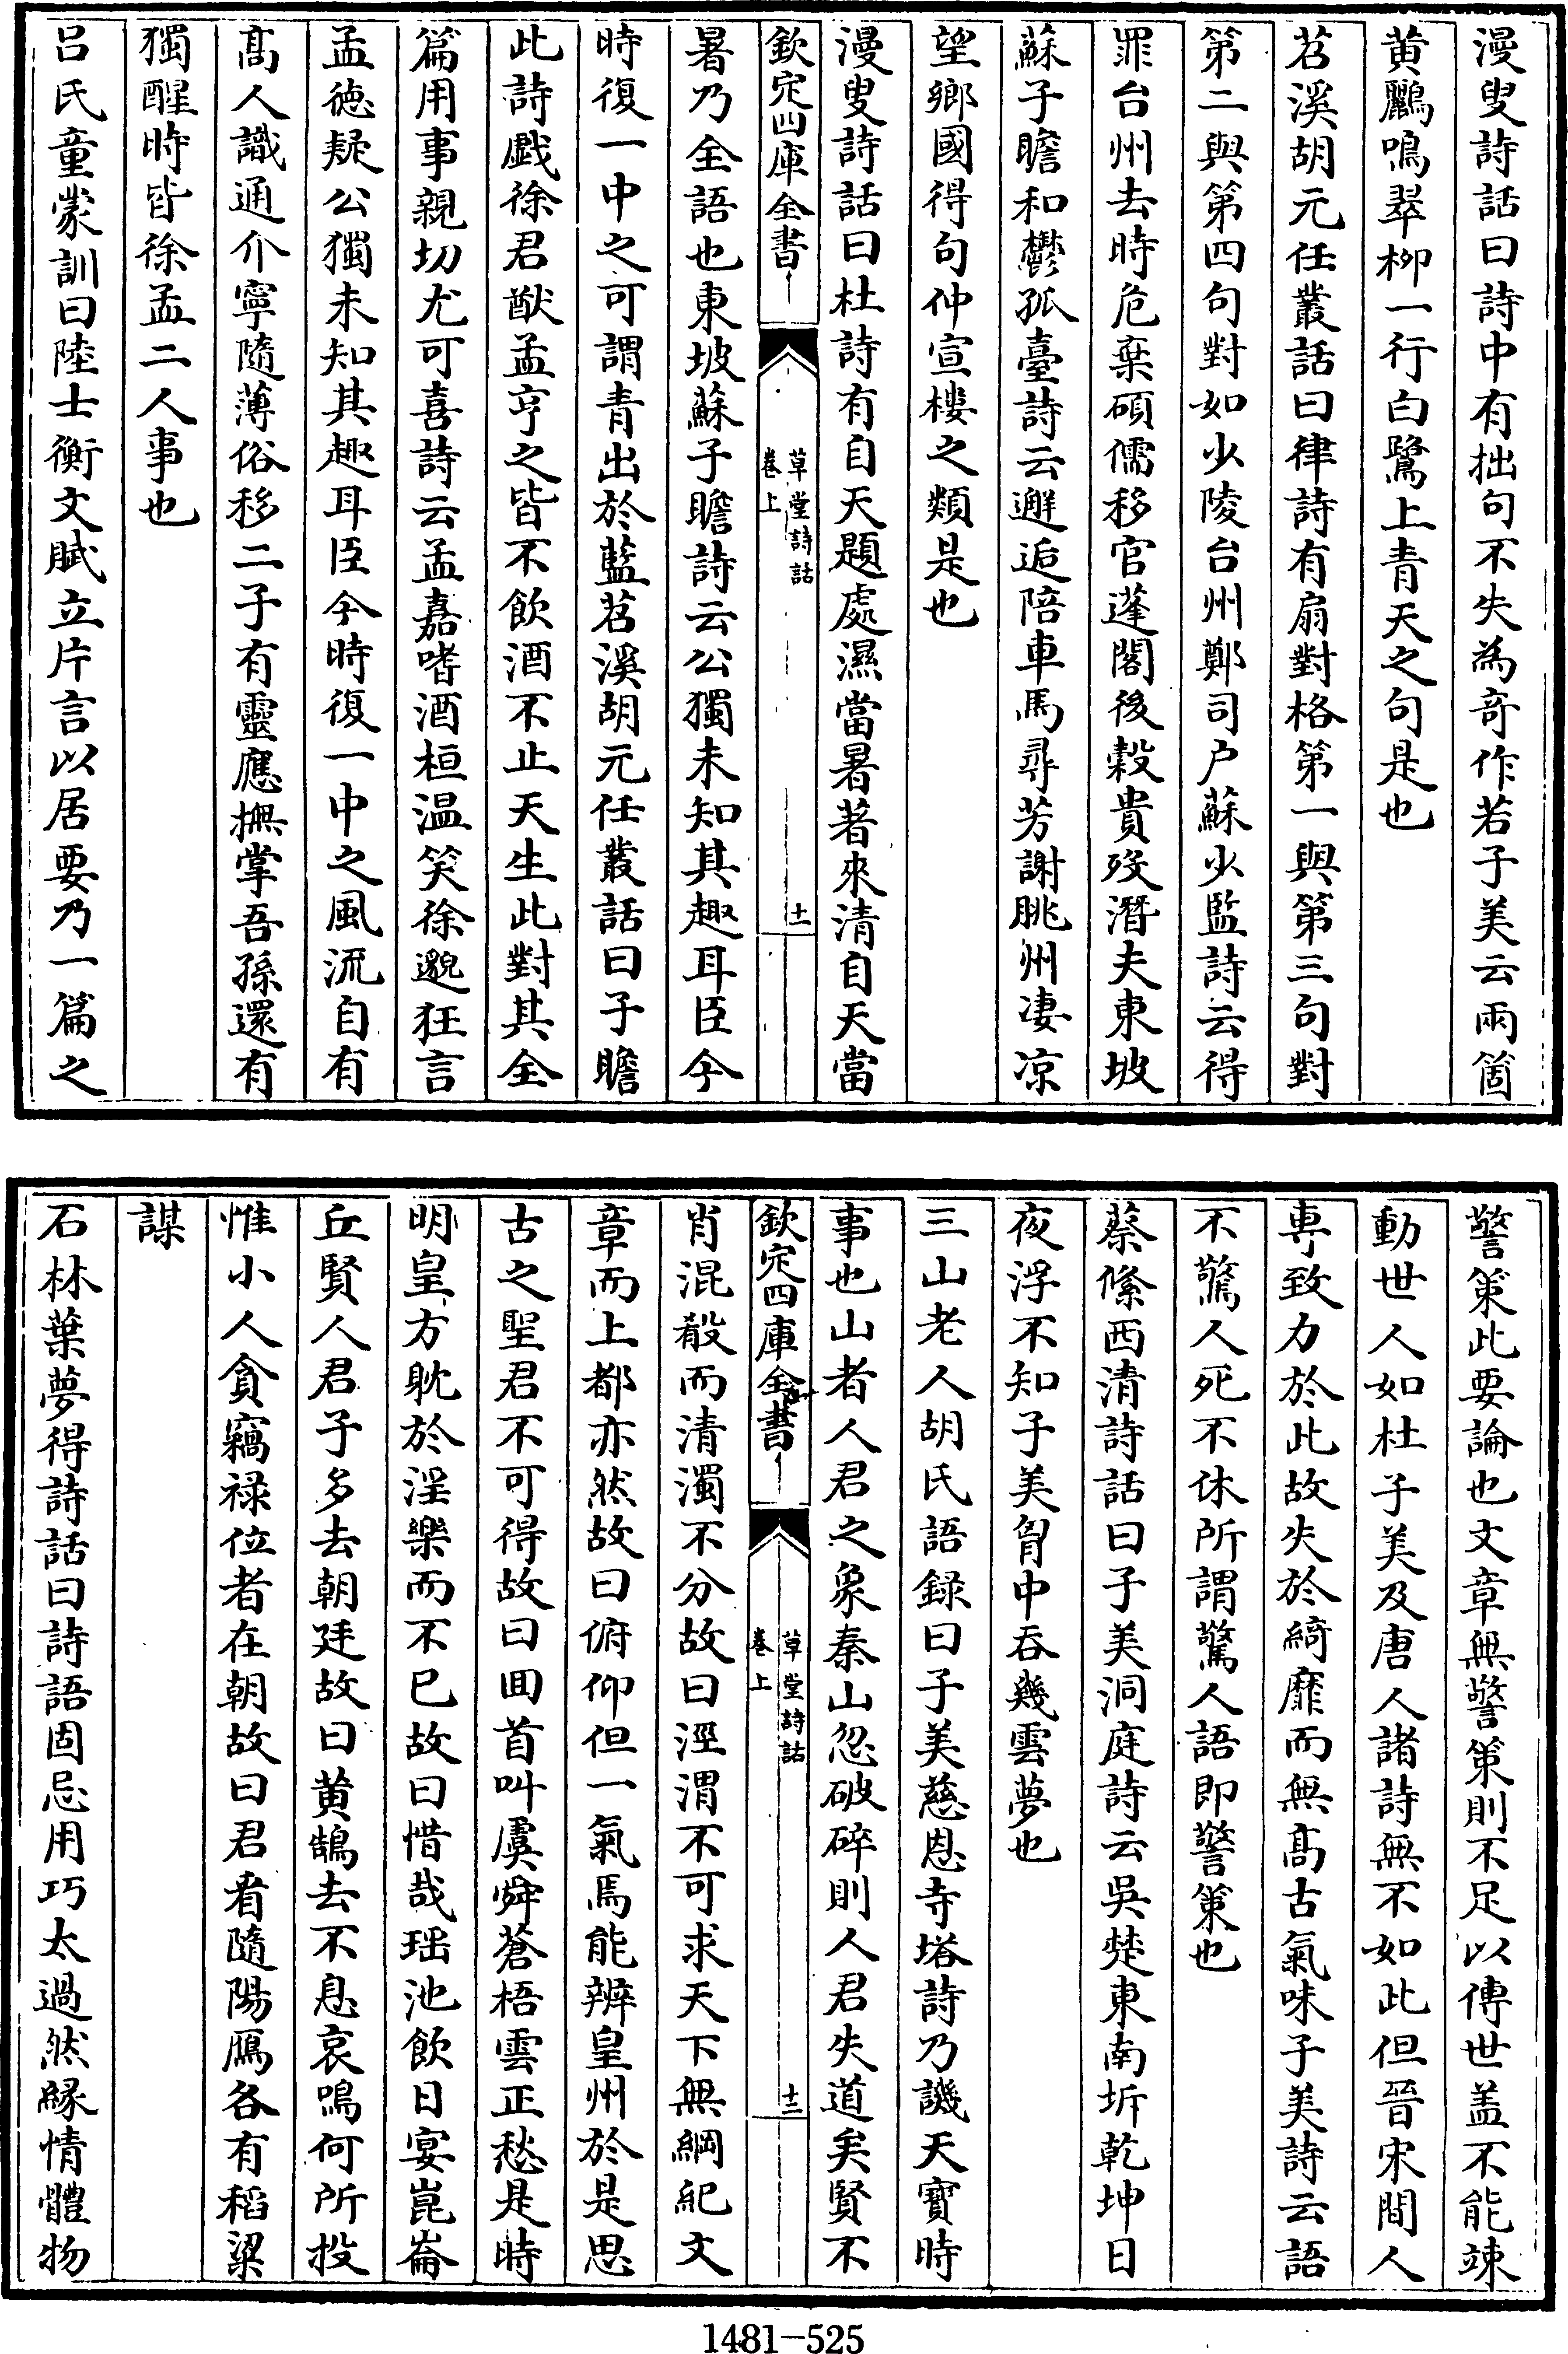 漫叟詩話曰詩中有拙句不失為竒作若子美云兩箇
黄鸝鳴翠栁一行白鷺上青天之句是也
苕溪胡元任叢話曰律詩有扇對格第一與第三句對
第二與第四句對如少陵台州鄭司户蘇少監詩云得
罪台州去時危棄碩儒移官蓬閣後穀貴殁潛夫東坡
蘇子瞻和鬱孤臺詩云邂逅陪車馬尋芳謝朓州凄凉
望鄉國得句仲宣樓之類是也
漫叟詩話曰杜詩有自天題處濕當暑著來清自天當
欽定四庫全書
草堂詩話
卷上
十一
暑乃全語也東坡蘇子瞻詩云公獨未知其趣耳臣今
時復一中之可謂青出於藍苕溪胡元任叢話曰子瞻
此詩戲徐君猷孟亨之皆不飲酒不止天生此對其全
篇用事親切尤可喜詩云孟嘉嗜酒桓温笑徐邈狂言
孟徳疑公獨未知其趣耳臣今時復一中之風流自有
髙人識通介寧隨薄俗移二子有靈應撫掌吾孫還有
獨醒時皆徐孟二人事也
吕氏童蒙訓曰陸士衡文賦立片言以居要乃一篇之
警策此要論也文章無警策則不足以傳世盖不能竦
動世人如杜子美及唐人諸詩無不如此但晉宋間人
専致力於此故失於綺靡而無髙古氣味子美詩云語
不驚人死不休所謂驚人語即警策也
蔡絛西清詩話曰子美洞庭詩云吳楚東南坼乾坤日
夜浮不知子美胷中吞幾雲夢也
三山老人胡氏語録曰子美慈恩寺塔詩乃譏天寳時
事也山者人君之象秦山忽破碎則人君失道矣賢不
欽定四庫全書
草堂詩話
卷上
十二
肖混殽而清濁不分故曰涇渭不可求天下無綱紀文
章而上都亦然故曰俯仰但一氣焉能辨皇州於是思
古之聖君不可得故曰囬首叫虞舜蒼梧雲正愁是時
明皇方耽於淫樂而不已故曰惜哉瑶池飲日宴崑崙
丘賢人君子多去朝廷故曰黄鵠去不息哀鳴何所投
惟小人貪竊禄位者在朝故曰君看隨陽鴈各有稻粱
謀
石林葉夢得詩話曰詩語固忌用巧太過然縁情體物
1481-525